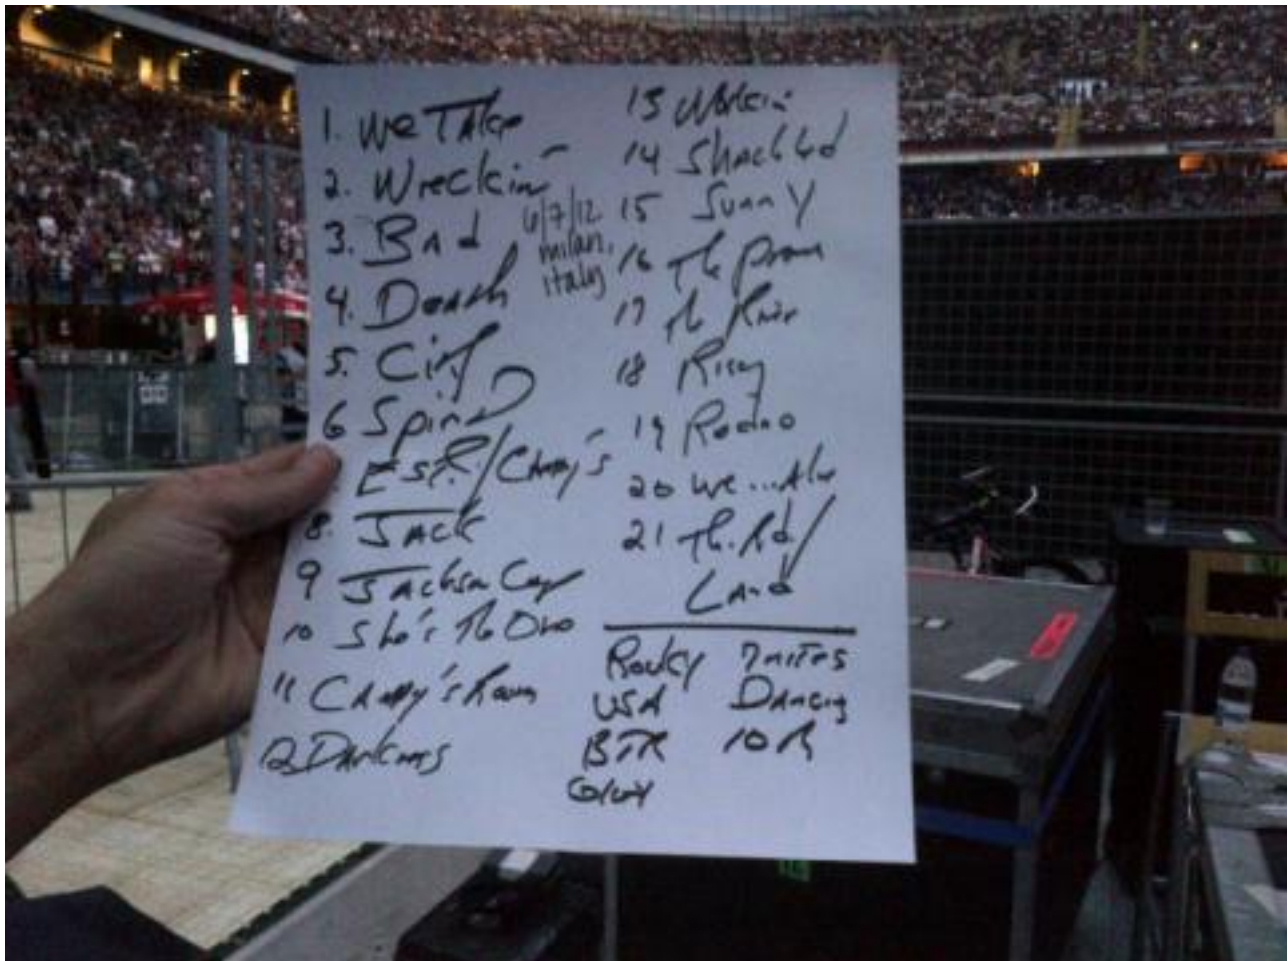 1. We Take
2. Wreckin
3. Bad
4. Death
5. City
6 Spirit
E St./Candy's
8. JACK
9 JACKson Cage
10 She's The One
11 Candy's Room
12 Darkness
6/7/12
milan,
italy
13 Workin
14 Shackled
15 Sunny
16 The Prom
17 The River
18 Rising
19 Radio
20 We...Alive
21 Th. Rd/
Land
Rocky 7 nites
USA Dancing
BTR 10th
Glory